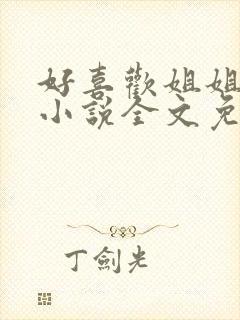 好喜歡姐姐
小說全文免
丁劍光